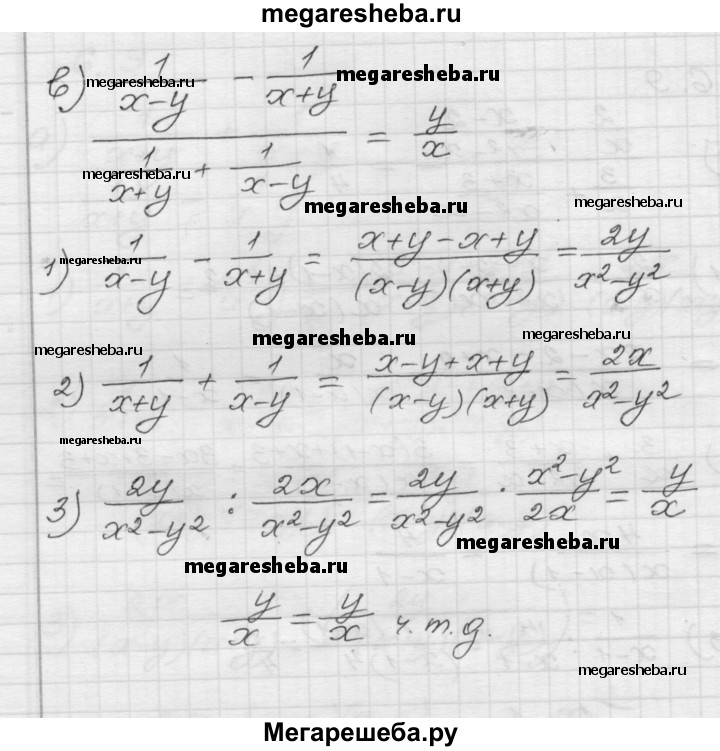 megaresheba.ru
в) (1/(x-y) - 1/(x+y)) / (1/(x+y) + 1/(x-y)) = y/x
megaresheba.ru megaresheba.ru
megaresheba.ru megaresheba.ru
1) 1/(x-y) - 1/(x+y) = (x+y-x+y)/((x-y)(x+y)) = 2y/(x²-y²)
megaresheba.ru megaresheba.ru
megaresheba.ru megaresheba.ru megaresheba.ru
2) 1/(x+y) + 1/(x-y) = (x-y+x+y)/((x-y)(x+y)) = 2x/(x²-y²)
megaresheba.ru
3) 2y/(x²-y²) : 2x/(x²-y²) = 2y/(x²-y²) · (x²-y²)/2x = y/x
megaresheba.ru
megaresheba.ru
y/x = y/x ч.т.д.
megaresheba.ru
Мегарешеба.ру